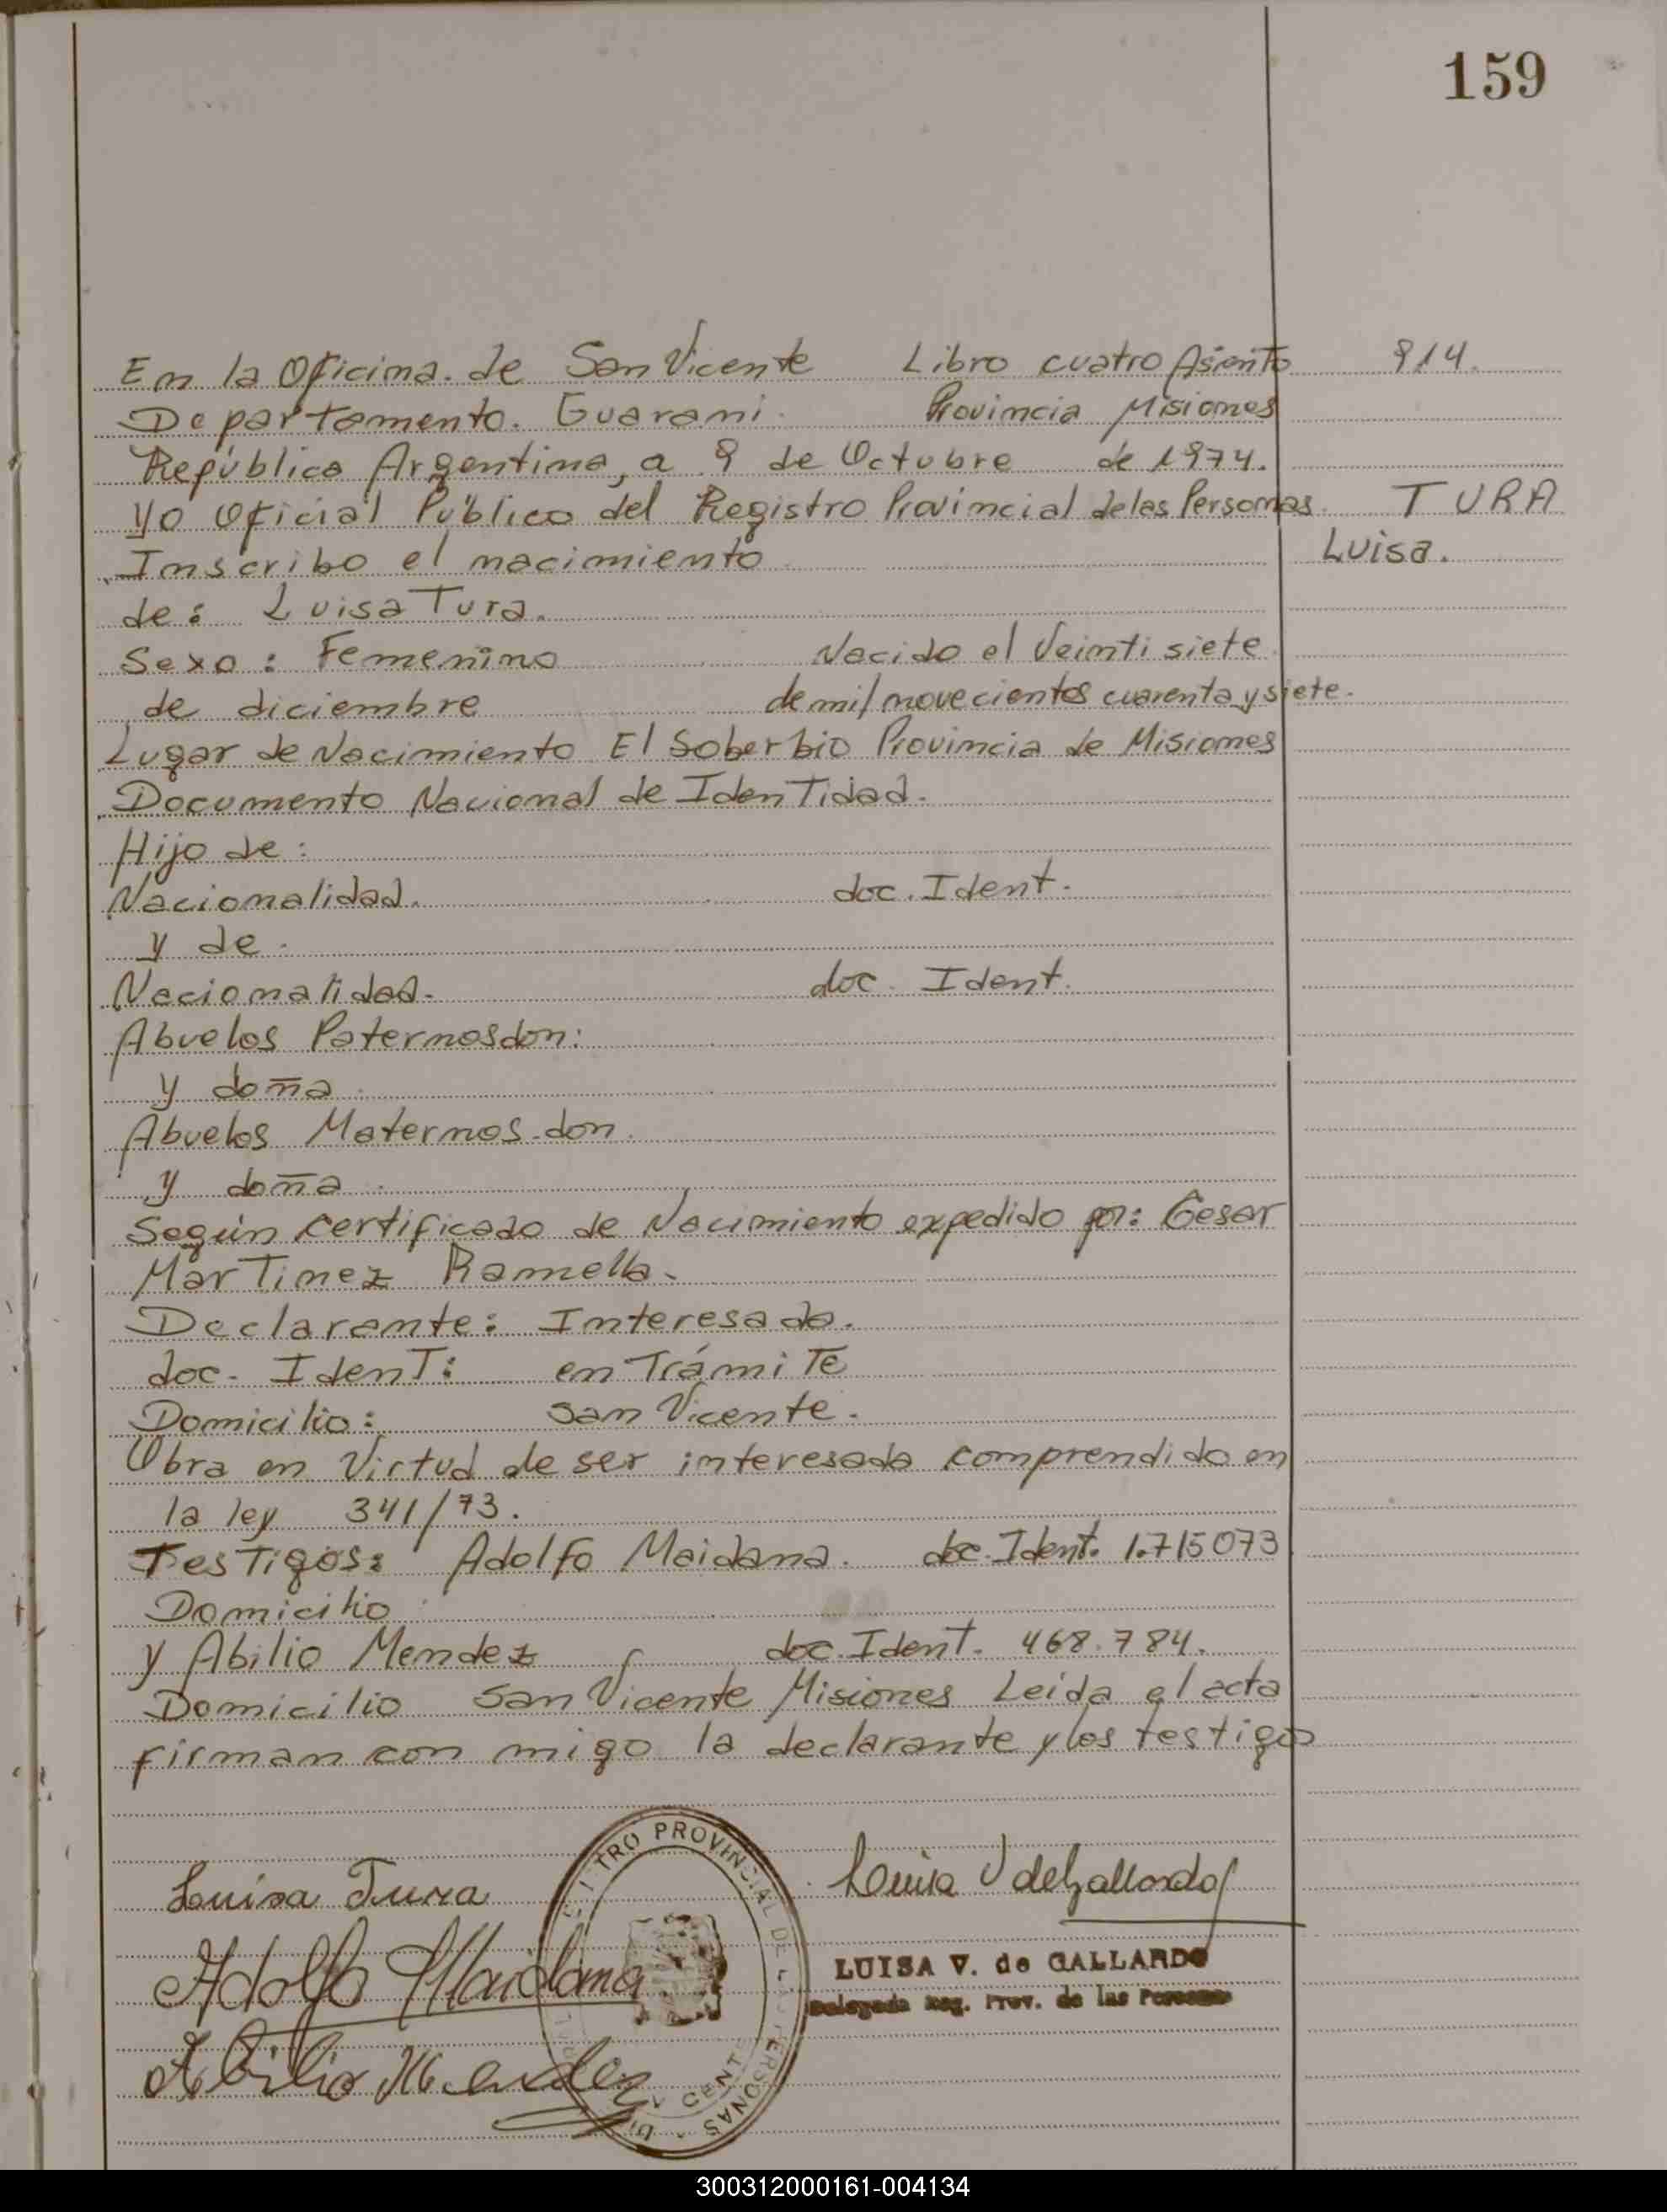 159
En la Oficina de San Vicente Libro cuatro Asiento 914.
Departamento. Guarani. Provincia Misiones
República Argentina, a 9 de Octubre de 1974.
yo Oficial Público del Registro Provincial de las Personas. TURA
Inscribo el nacimiento Luisa.
de: Luisa Tura.
Sexo: Femenino Nacido el Veinti siete
de diciembre de mil novecientos cuarenta y siete.
Lugar de Nacimiento El Soberbio Provincia de Misiones
Documento Nacional de Identidad.
Hijo de:
Nacionalidad. doc. Ident.
y de.
Nacionalidad. doc. Ident.
Abuelos Paternos don:
y doña
Abuelos Maternos don.
y doña
Según certificado de Nacimiento expedido por: Cesar
Martinez Ramella.
Declarante: Interesada.
doc. Ident: en Trámite
Domicilio: San Vicente.
Obra en Virtud de ser interesada comprendida en
la ley 341/73.
Testigos: Adolfo Maidana. doc. Ident. 1.715073
Domicilio
y Abilio Mendez doc. Ident. 468.784.
Domicilio San Vicente Misiones Leída el acta
firman con migo la declarante y los testigos
Luisa Tura
Luisa V de Gallardo
Adolfo Maidana
LUISA V. de GALLARDO
Delegada Reg. Prov. de las Personas
Abilio Mendez
PROVINCIAL DE LAS PERSONAS
300312000161-004134